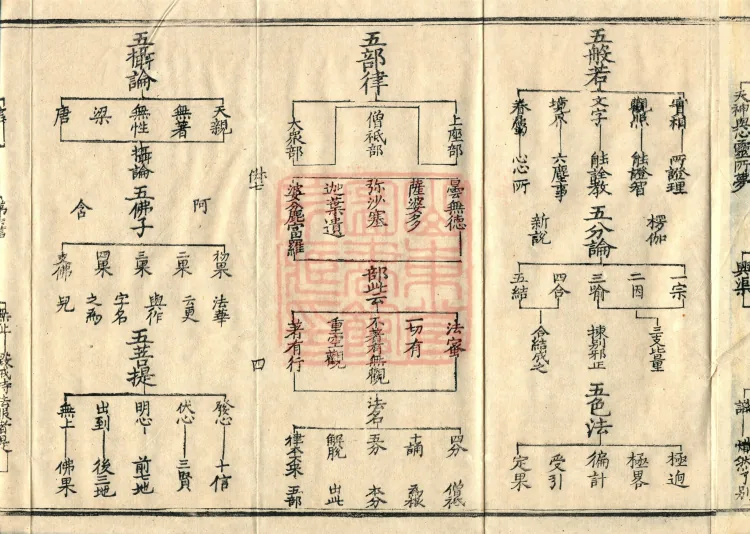 五般若
實相 所證理
觀照 能證智
文字 能詮教
境界 六塵事
眷屬 心心所
五分論
楞伽
新說
一宗
二因
三喻
四合
五結
三支比量
揀別邪正
合結成之
五色法
極逈
極畧
徧計
受引
定果
五部律
上座部
僧祇部
大衆部
曇無德
薩婆多
弥沙塞
迦葉遺
婆麁富羅
部此云
法蜜
一切有
不著有無觀
重空觀
著有行
法名
四分 僧祇
十誦 為根
五分 本分
解脫 出此
律本未來 五部
五攝論
天親
無著
無性
梁
唐
攝論
五佛子
阿
含
初果 法華
二果 云更
三果 與作
四果 之為
支佛 兒
字名
五菩提
發心 十信
伏心 三賢
明心 前七地
出到 後三地
無上 佛果
四
天神與靈所夢